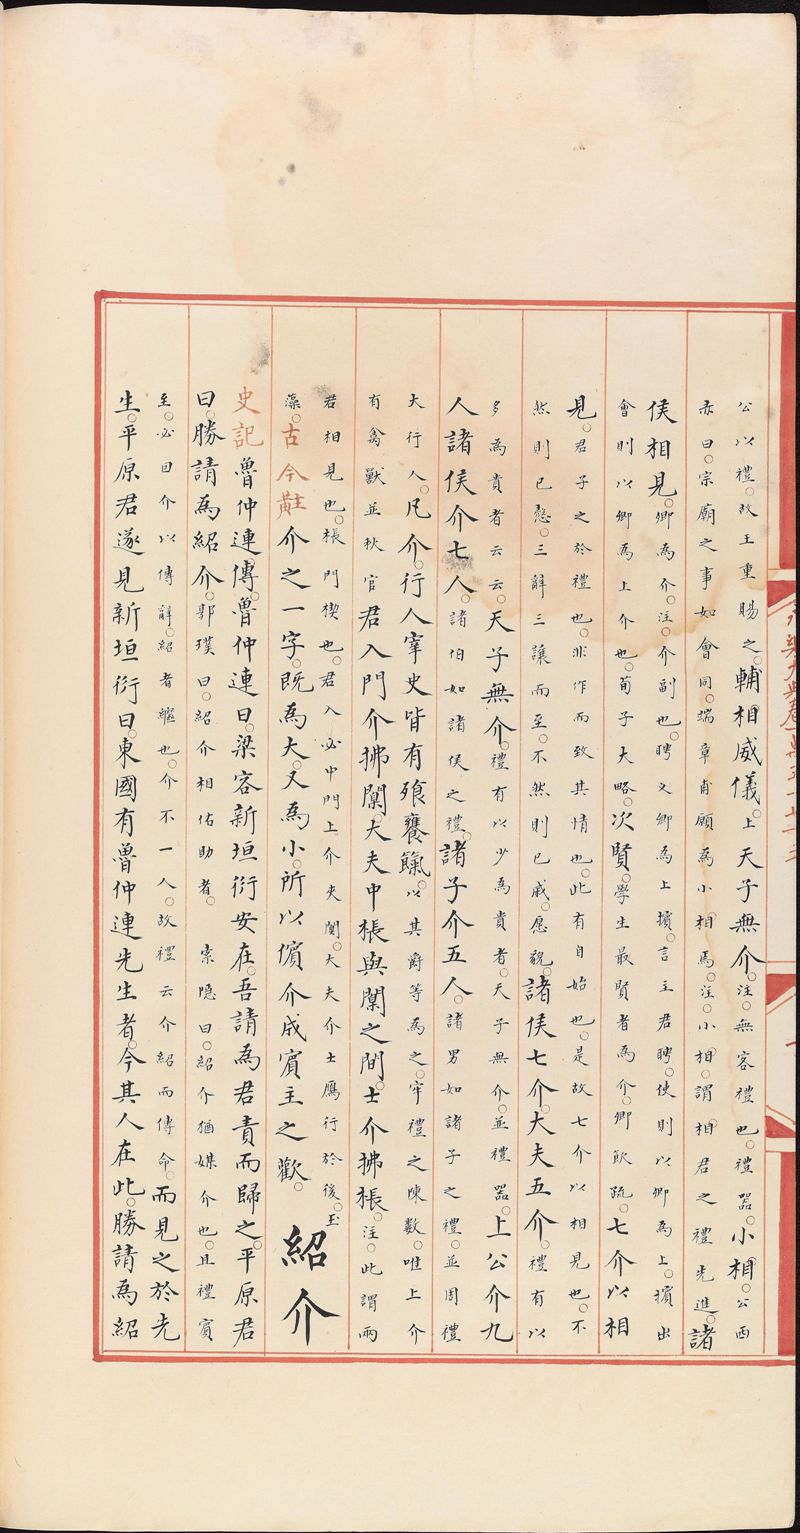 公以禮。故王重賜之。輔相威儀。上天子無介。注。無客禮也。禮器。小相。公西
赤曰。宗廟之事如會同。端章甫願為小相焉。注。小相。謂相君之禮先進。諸
侯相見。卿為介。注。介副也。聘义卿為上擯。言主君聘。使則以卿為上。擯出
會則以卿為上介也。荀子大略。次賢。學生最賢者為介。卿飲疏。七介以相
見。君子之於禮也。非作而致其情也。此有自始也。是故七介以相見也。不
然則已慤。三辭三讓而至。不然則已戚。愿貌。諸侯七介。大夫五介。禮有以
多為貴者云云。天子無介。禮有以少為貴者。天子無介。並禮器。上公介九
人諸侯介七人。諸伯如諸侯之禮。諸子介五人。諸男如諸子之禮。並周禮
大行人。凡介。行人宰史皆有飧饔餼。以其爵等為之。牢禮之陳數。唯上介
有禽獸並秋官君入門介拂闑。大夫中棖與闑之間。士介拂棖。注。此謂兩
君相見也。棖門楔也。君入必中門上介夾闑。大夫介士鴈行於後。玉
藻。古今黈介之一字。既為大。又為小。所以儐介成賓主之歡。
紹介
史記魯仲連傳。魯仲連曰。梁客新垣衍安在。吾請為君責而歸之。平原君
曰。勝請為紹介。郭璞曰。紹介相佑助者。索隱曰。紹介猶媒介也。且禮賓
至。必因介以傳辭。紹者繼也。介不一人。故禮云介紹而傳命。而見之於先
生。平原君遂見新垣衍曰。東國有魯仲連先生者。今其人在此。勝請為紹